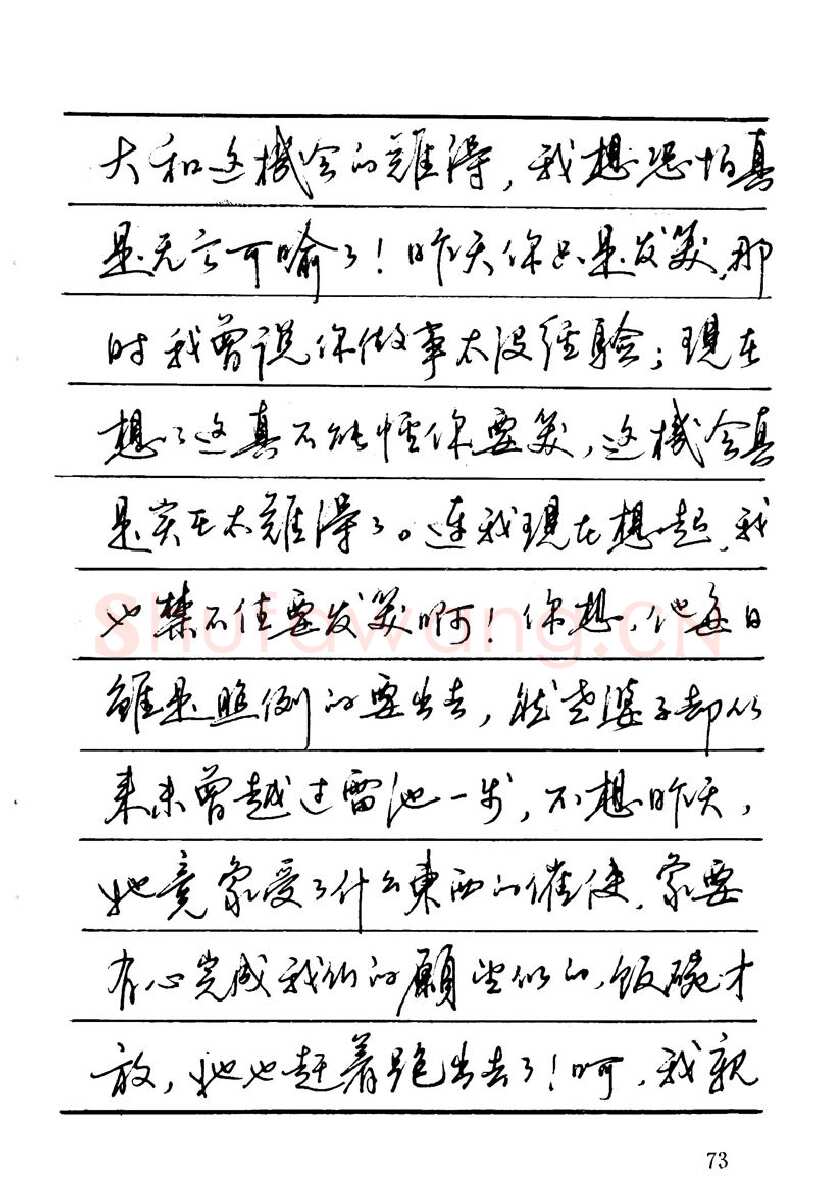 大和这機会的難得，我想恐怕真
是无言可喻了！昨天你只是发笑，那
时我曾说你做事太没経驗；現在
想以这真不能怪你要笑，这機会真
是实在太難得了。连我現在想起，我
也禁不住要发笑啊！你想，他每日
雖是照例的要出去，然老婆子却从
来未曾越过雷池一步，不想昨天，
她竟象受了什么東西的催使，象要
有心完成我们的願望似的，饭碗才
放，她也赶着跑出去了！呵，我親
73
Shufawang.CN